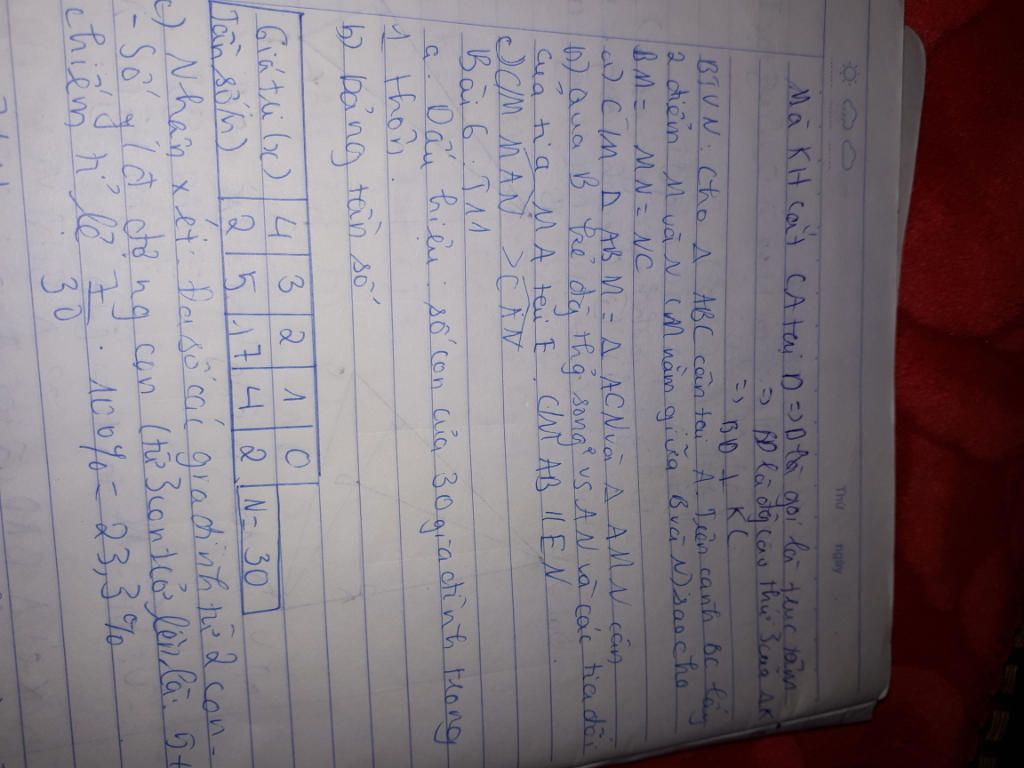 Thứ Ngày
Mà KH cắt CA tại D => D là gọi là trực tâm
=> BD là đg cao thứ 3 của
=> BD ⊥ KC
BTVN. Cho Δ ABC cân tại A. Trên cạnh BC lấy
2 điểm M và N (M nằm giữa B và N) sao cho
BM = MN = NC
a) CM Δ ABM = Δ ACN và Δ AMN cân
b) qua B kẻ đg thg song² vs AN và cắt tia đối
của tia MA tại E. CM AB // EN
c) CM MAN > CAN
Bài 6.
a. Dấu hiệu: số con của 30 gia đình trong
1 thôn.
b) Bảng tần số
Giá trị (x) 4 3 2 1 0
Tần số (n) 2 5 17 4 2 N = 30
c) Nhận xét: Đa số các gia đình từ 2 con
- Số g/đ đông con (từ 3 con trở lên) là 5+
chiếm tỉ lệ 7/30 . 100% = 23,3%